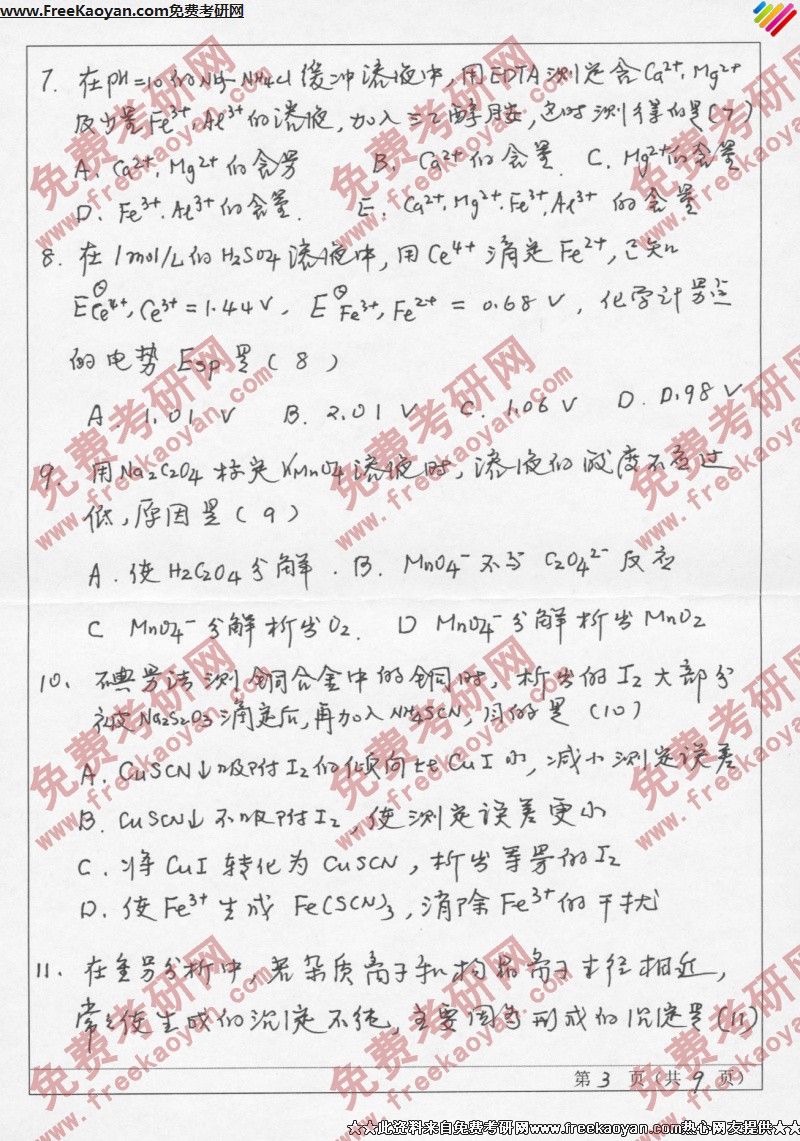 www.FreeKaoyan.com免费考研网
7. 在pH=10的NH3-NH4Cl缓冲溶液中,用EDTA测定含Ca2+, Mg2+
及少量Fe3+, Al3+的溶液,加入三乙醇胺,这时测得的是(7)
A. Ca2+, Mg2+的含量 B. Ca2+的含量. C. Mg2+的含量
D. Fe3+. Al3+的含量. E. Ca2+, Mg2+. Fe3+, Al3+ 的含量
8. 在1mol/L的H2SO4溶液中,用Ce4+滴定Fe2+,已知
E⊖Ce4+, Ce3+ = 1.44V, E⊖Fe3+, Fe2+ = 0.68V, 化学计量点
的电势Esp是(8)
A. 1.01 V B. 2.01 V C. 1.06 V D. 0.98 V
9. 用Na2C2O4标定KMnO4溶液时,溶液的酸度不宜过
低,原因是(9)
A. 使H2C2O4分解. B. MnO4- 不与 C2O42- 反应
C MnO4- 分解析出O2. D MnO4- 分解析出MnO2
10. 碘量法测铜合金中的铜时,析出的I2大部分
被Na2S2O3滴定后,再加入NH4SCN,目的是(10)
A. CuSCN↓吸附I2的倾向比CuI小,减小测定误差
B. CuSCN↓不吸附I2,使测定误差更小
C. 将CuI转化为CuSCN,析出等量的I2
D. 使Fe3+生成 Fe(SCN)3,消除Fe3+的干扰
11. 在重量分析中,若杂质离子和构晶离子半径相近,
常常使生成的沉淀不纯,主要因为形成的沉淀是(11)
第 3 页(共 9 页)
★☆此资料来自免费考研网www.freekaoyan.com热心网友提供★☆★
免费考研网
www.freekaoyan.com